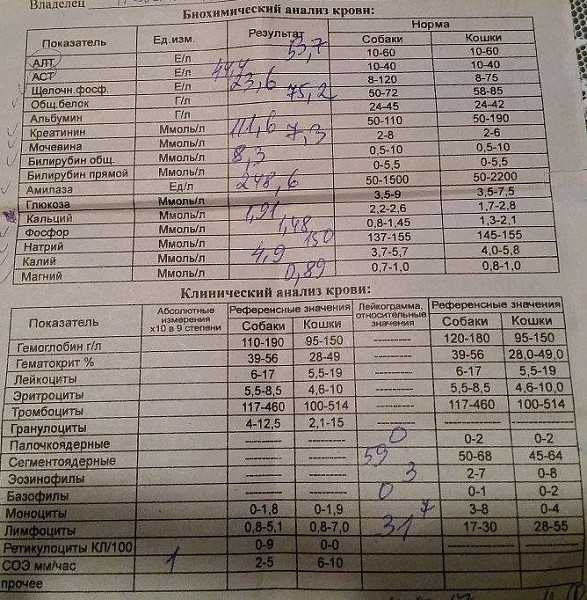 Владелец
Биохимический анализ крови:
Показатель Ед.изм. Результат Норма
Собаки Кошки
АЛТ Е/л 53,7 10-60 10-60
АСТ Е/л 44,4 10-40 10-40
Щелочн.фосф. Е/л 23,6 8-120 8-75
Общ.белок Г/л 75,2 50-72 58-85
Альбумин Г/л 24-45 24-42
Креатинин Ммоль/л 111,6 50-110 50-190
Мочевина Ммоль/л 7,3 2-8 2-6
Билирубин общ. Ммоль/л 8,3 0,5-10 0,5-10
Билирубин прямой Ммоль/л 0-5,5 0-5,5
Амилаза Ед/л 248,6 50-1500 50-2200
Глюкоза Ммоль/л 3,5-9 3,5-7,5
Кальций Ммоль/л 1,91 2,2-2,6 1,7-2,8
Фосфор Ммоль/л 1,48 0,8-1,45 1,3-2,1
Натрий Ммоль/л 150 137-155 145-155
Калий Ммоль/л 4,9 3,7-5,7 4,0-5,8
Магний Ммоль/л 0,89 0,7-1,0 0,8-1,0
Клинический анализ крови:
Показатель Абсолютные измерения х10 в 9 степени Референсные значения Лейкограмма, относительные значения Референсные значения
Собаки Кошки Собаки Кошки
Гемоглобин г/л 110-190 95-150 ---------- 120-180 95-150
Гематокрит % 39-56 28-49 ---------- 39-56 28,0-49,0
Лейкоциты 6-17 5,5-19 ---------- 6-17 5,5-19
Эритроциты 5,5-8,5 4,6-10 ---------- 5,5-8,5 4,6-10,0
Тромбоциты 117-460 100-514 ---------- 117-460 100-514
Гранулоциты 4-12,5 2,1-15 ---------- ----------
Палочкоядерные ---------- ---------- 0 0-2 0-2
Сегментоядерные ---------- ---------- 59 50-68 45-64
Эозинофилы ---------- ---------- 3 2-7 0-8
Базофилы ---------- ---------- 0 0-1 0-2
Моноциты 0-1,8 0-1,9 7 3-8 0-4
Лимфоциты 0,8-5,1 0,8-7,0 31 17-30 28-55
Ретикулоциты КЛ/100 0-9 0-0 ---------- ---------- ----------
СОЭ мм/час 1 2-5 6-10 ---------- ---------- ----------
прочее